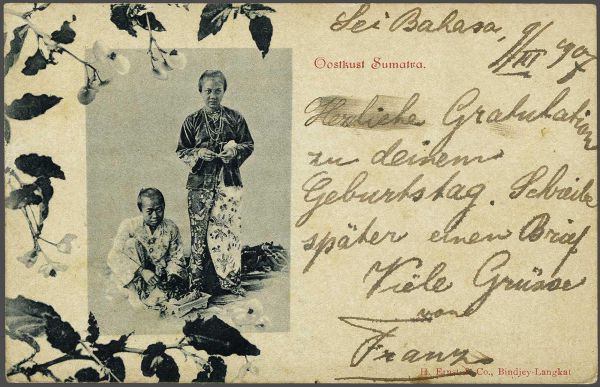 Sei Bahasa,
9/XI 07
Oostkust Sumatra.
Herzliche Gratulation
zu deinem
Geburtstag. Schreibe
später einen Brief
Viele Grüsse
von
Franz
H. Ernst & Co., Bindjey-Langkat